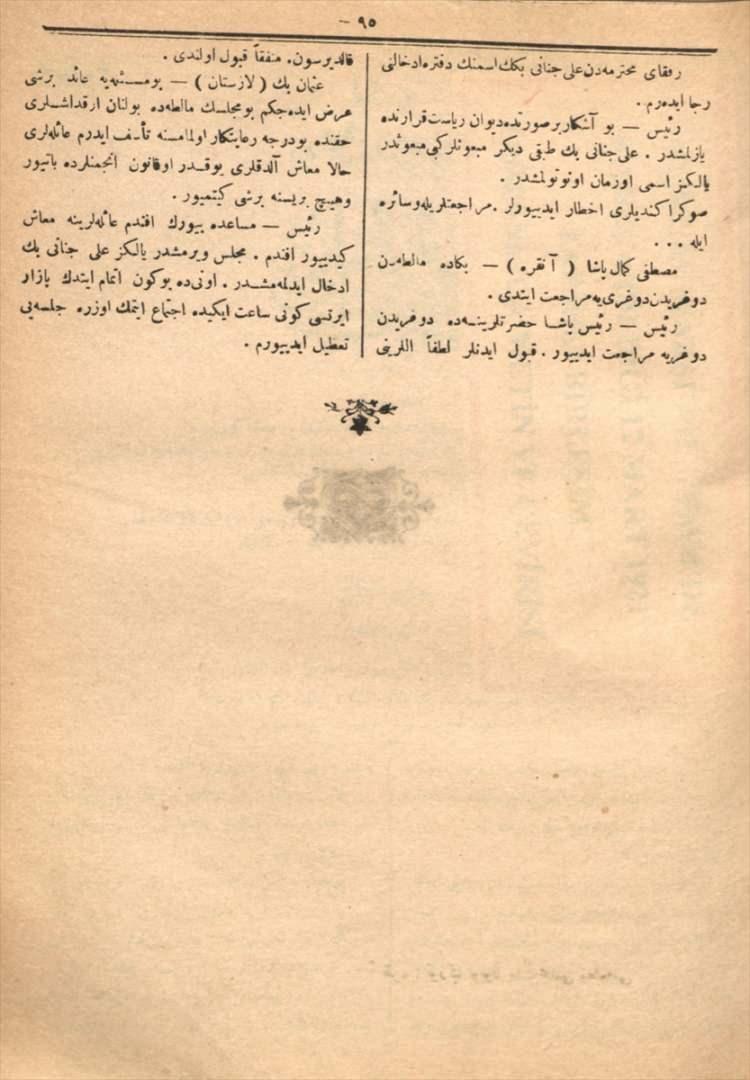 — ٩٥ —
رفقای محترمه‌دن علی جنانی بكك اسمنك دفتره ادخالنی
رجا ایده‌رم.
رئیس — بو آشكار بر صورتده دیوان ریاست قرارنده
یازلمشدر . علی جنانی بك طبقی دیكر مبعوثلر كبی مبعوثدر
یالكز اسمی اوزمان اونوتولمشدر .
صوكرا كندیلری اخطار ایدییورلر . مراجعتلریله وسائره
ایله ...
مصطفی كمال پاشا ( آنقره ) — بكاده مالطه‌دن
دوغریدن دوغری‌یه مراجعت ایتدی .
رئیس — رئیس پاشا حضرتلرینه‌ده دوغریدن
دوغری‌یه مراجعت ایدییور . قبول ایدنلر لطفاً اللرینی
قالدیرسون. متفقاً قبول اولندی .
عثمان بك ( لازستان ) — بو مسئله‌یه عائد برشی
عرض ایده‌جكم بو مجلسك مالطه‌ده بولنان ارقداشلری
حقنده بودرجه رعایتكار اولمامسنه تأسف ایدرم عائله‌لری
حالا معاش آلدقلری یوقدر اوقانون انجمنلرده یاتیور
وهیچ بریسنه برشی كیتمیور .
رئیس — مساعده بیورك افندم عائله‌لرینه معاش
كیدییور افندم . مجلس ویرمشدر یالكز علی جنانی بك
ادخال ایدلمه‌مشدر . اونی‌ده بوكون اتمام ایتدك بازار
ایرتسی كونی ساعت ایكیده اجتماع ایتمك اوزره جلسه‌یی
تعطیل ایدییورم .